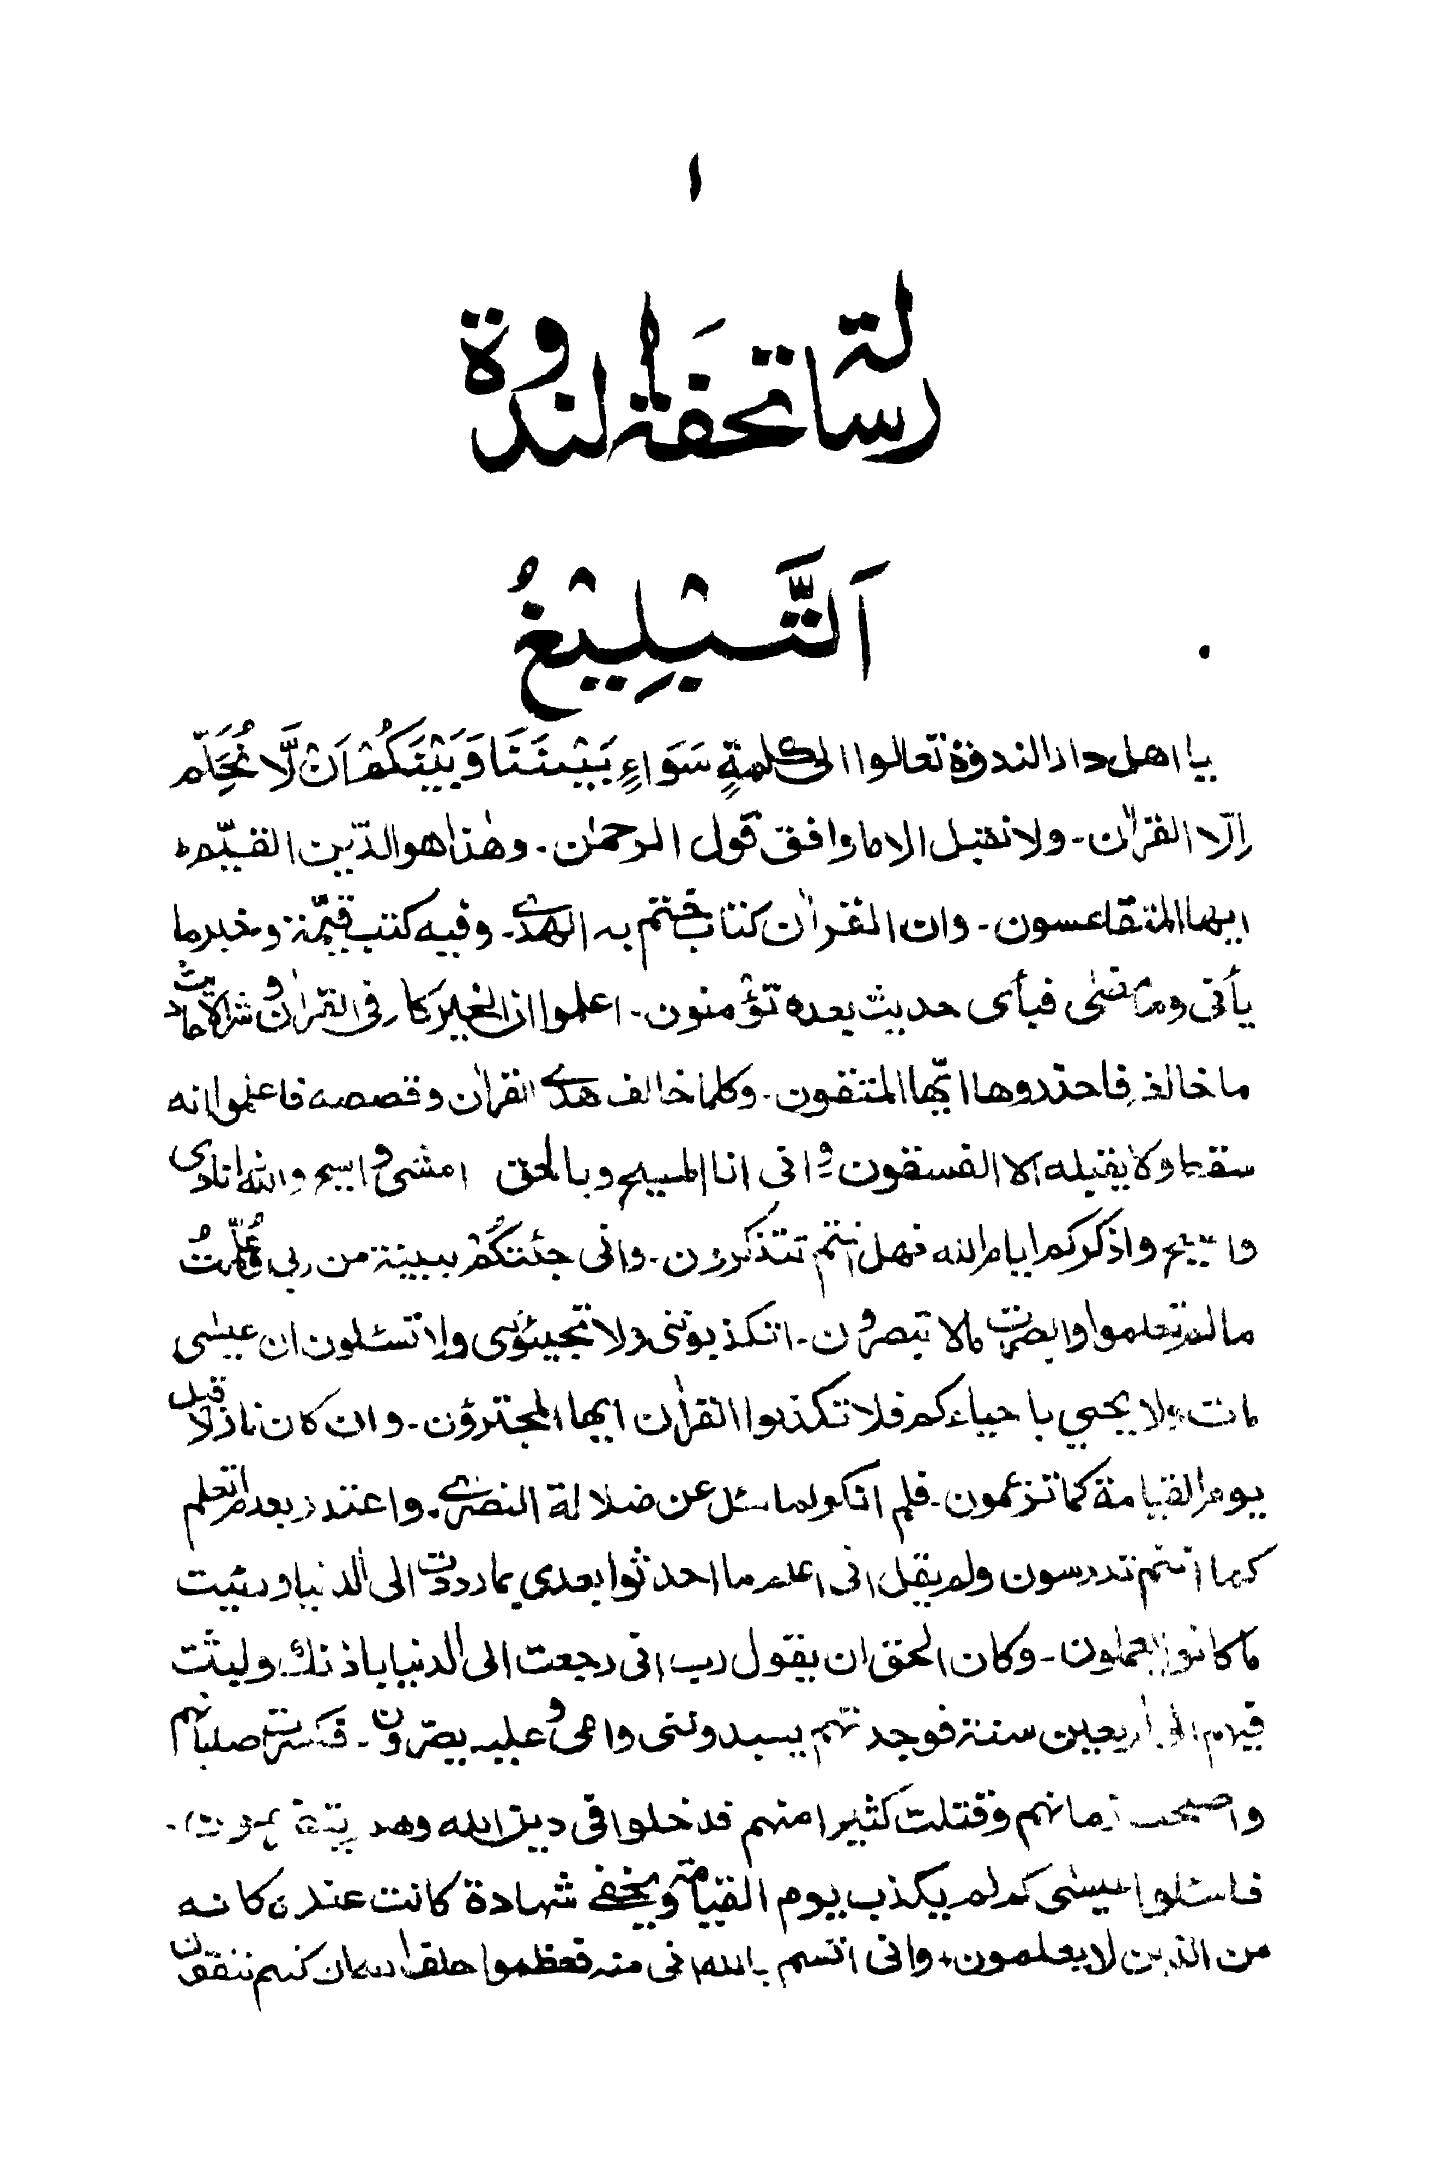 ١
رسالة تحفة الندوة
اَلتَّبْلِيْغُ
يا اهل دار الندوة تعالوا الى كلمةٍ سَوَاءٍ بَيْنَنَا وَبَيْنَكُمْ اَنْ لَّا نُحَكِّم
اِلّا القراٰن۔ ولا نقبل الا ما وافق قول الرحمٰن۔ وهٰذا هو الدّين القيّم
ايها المتقاعسون۔ وان القراٰن كتاب ختم به الهدىٰ۔ وفيه كتب قيّمة وخبر ما
يأتى وما مضٰى فبأى حديث بعده تؤمنون۔ اعلموا ان الخير كله فى القراٰن و شر الاحاديث
ما خالفه فاحذروها ايّها المتقون۔ وكلما خالف هدى القراٰن وقصصه فاعلموا انه
سقط ولا يقبله الا الفسقون و انى انا المسيح وبالحق امشى و اسيح والله انادى
و اصيح واذكركم ايام الله فهل انتم تتذكرون۔ وانى جئتكُمْ ببينة من ربى و عُلّمتُ
ما لم تعلموا وابصرت ما لا تبصرون۔ اتكذبوننى ولا تجيئوننى ولا تسئلون ان عيسٰى
مات ولا يحيى باحياءكم فلا تكذبوا القراٰن ايها المجترؤن۔ وان كان نازلا قبل
يوم القيامة كما تزعمون۔ فلم انكر لما سئل عن ضلالة النصرىٰ۔ واعتذر بعدم تعلم
كما انتم تدرسون ولم يقل انى اعلم ما احدثوا بعدى بما رددت الى الدنيا ورئيت
ما كانوا يعملون۔ وكان الحق ان يقول رب انى رجعت الى الدنيا باذنك ولبثت
فيهم الى اربعين سنة فوجدتهم يعبدوننى وامى و عليه يصرّون۔ فكسرت صلبانهم
واصلحت زمانهم وقتلت كثيرا منهم فدخلوا فى دين الله وهم يتضرعون۔
فاسئلوا عيسٰى كم لم يكذب يوم القيامة ويخفى شهادة كانت عنده كانه
من الذين لا يعلمون۔ وانى اقسم بالله انى منه فعظموا حلف الله ان كنتم تتقون